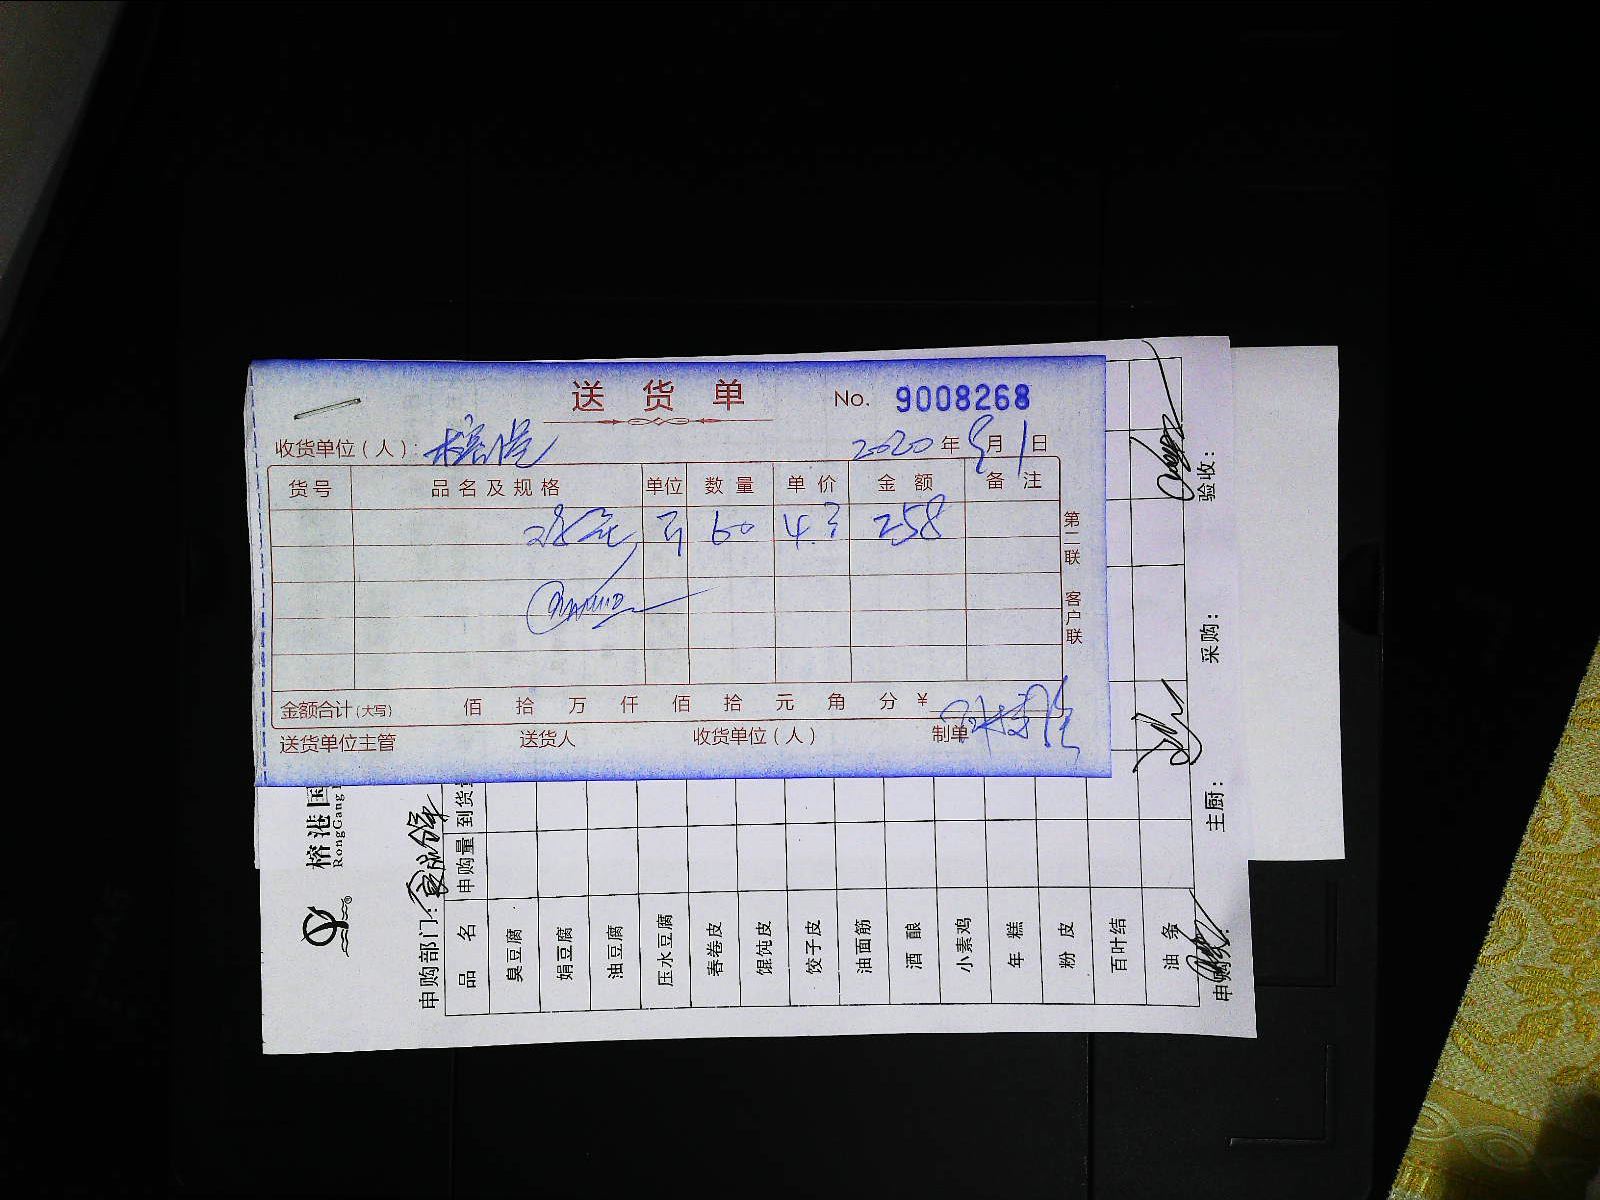 送货单 No. 9008268
收货单位（人）：榕港 2020年5月1日
货号 品名及规格 单位 数量 单价 金额 备注
60 4.3 258
第二联 客户联
金额合计（大写） 佰 拾 万 仟 佰 拾 元 角 分 ¥
送货单位主管 送货人 收货单位（人） 制单
榕港国
RongGang
申购部门：
品名 申购量 到货
臭豆腐
娟豆腐
油豆腐
压水豆腐
春卷皮
馄饨皮
饺子皮
油面筋
酒酿
小素鸡
年糕
粉皮
百叶结
油条
申购 主厨： 采购： 验收：